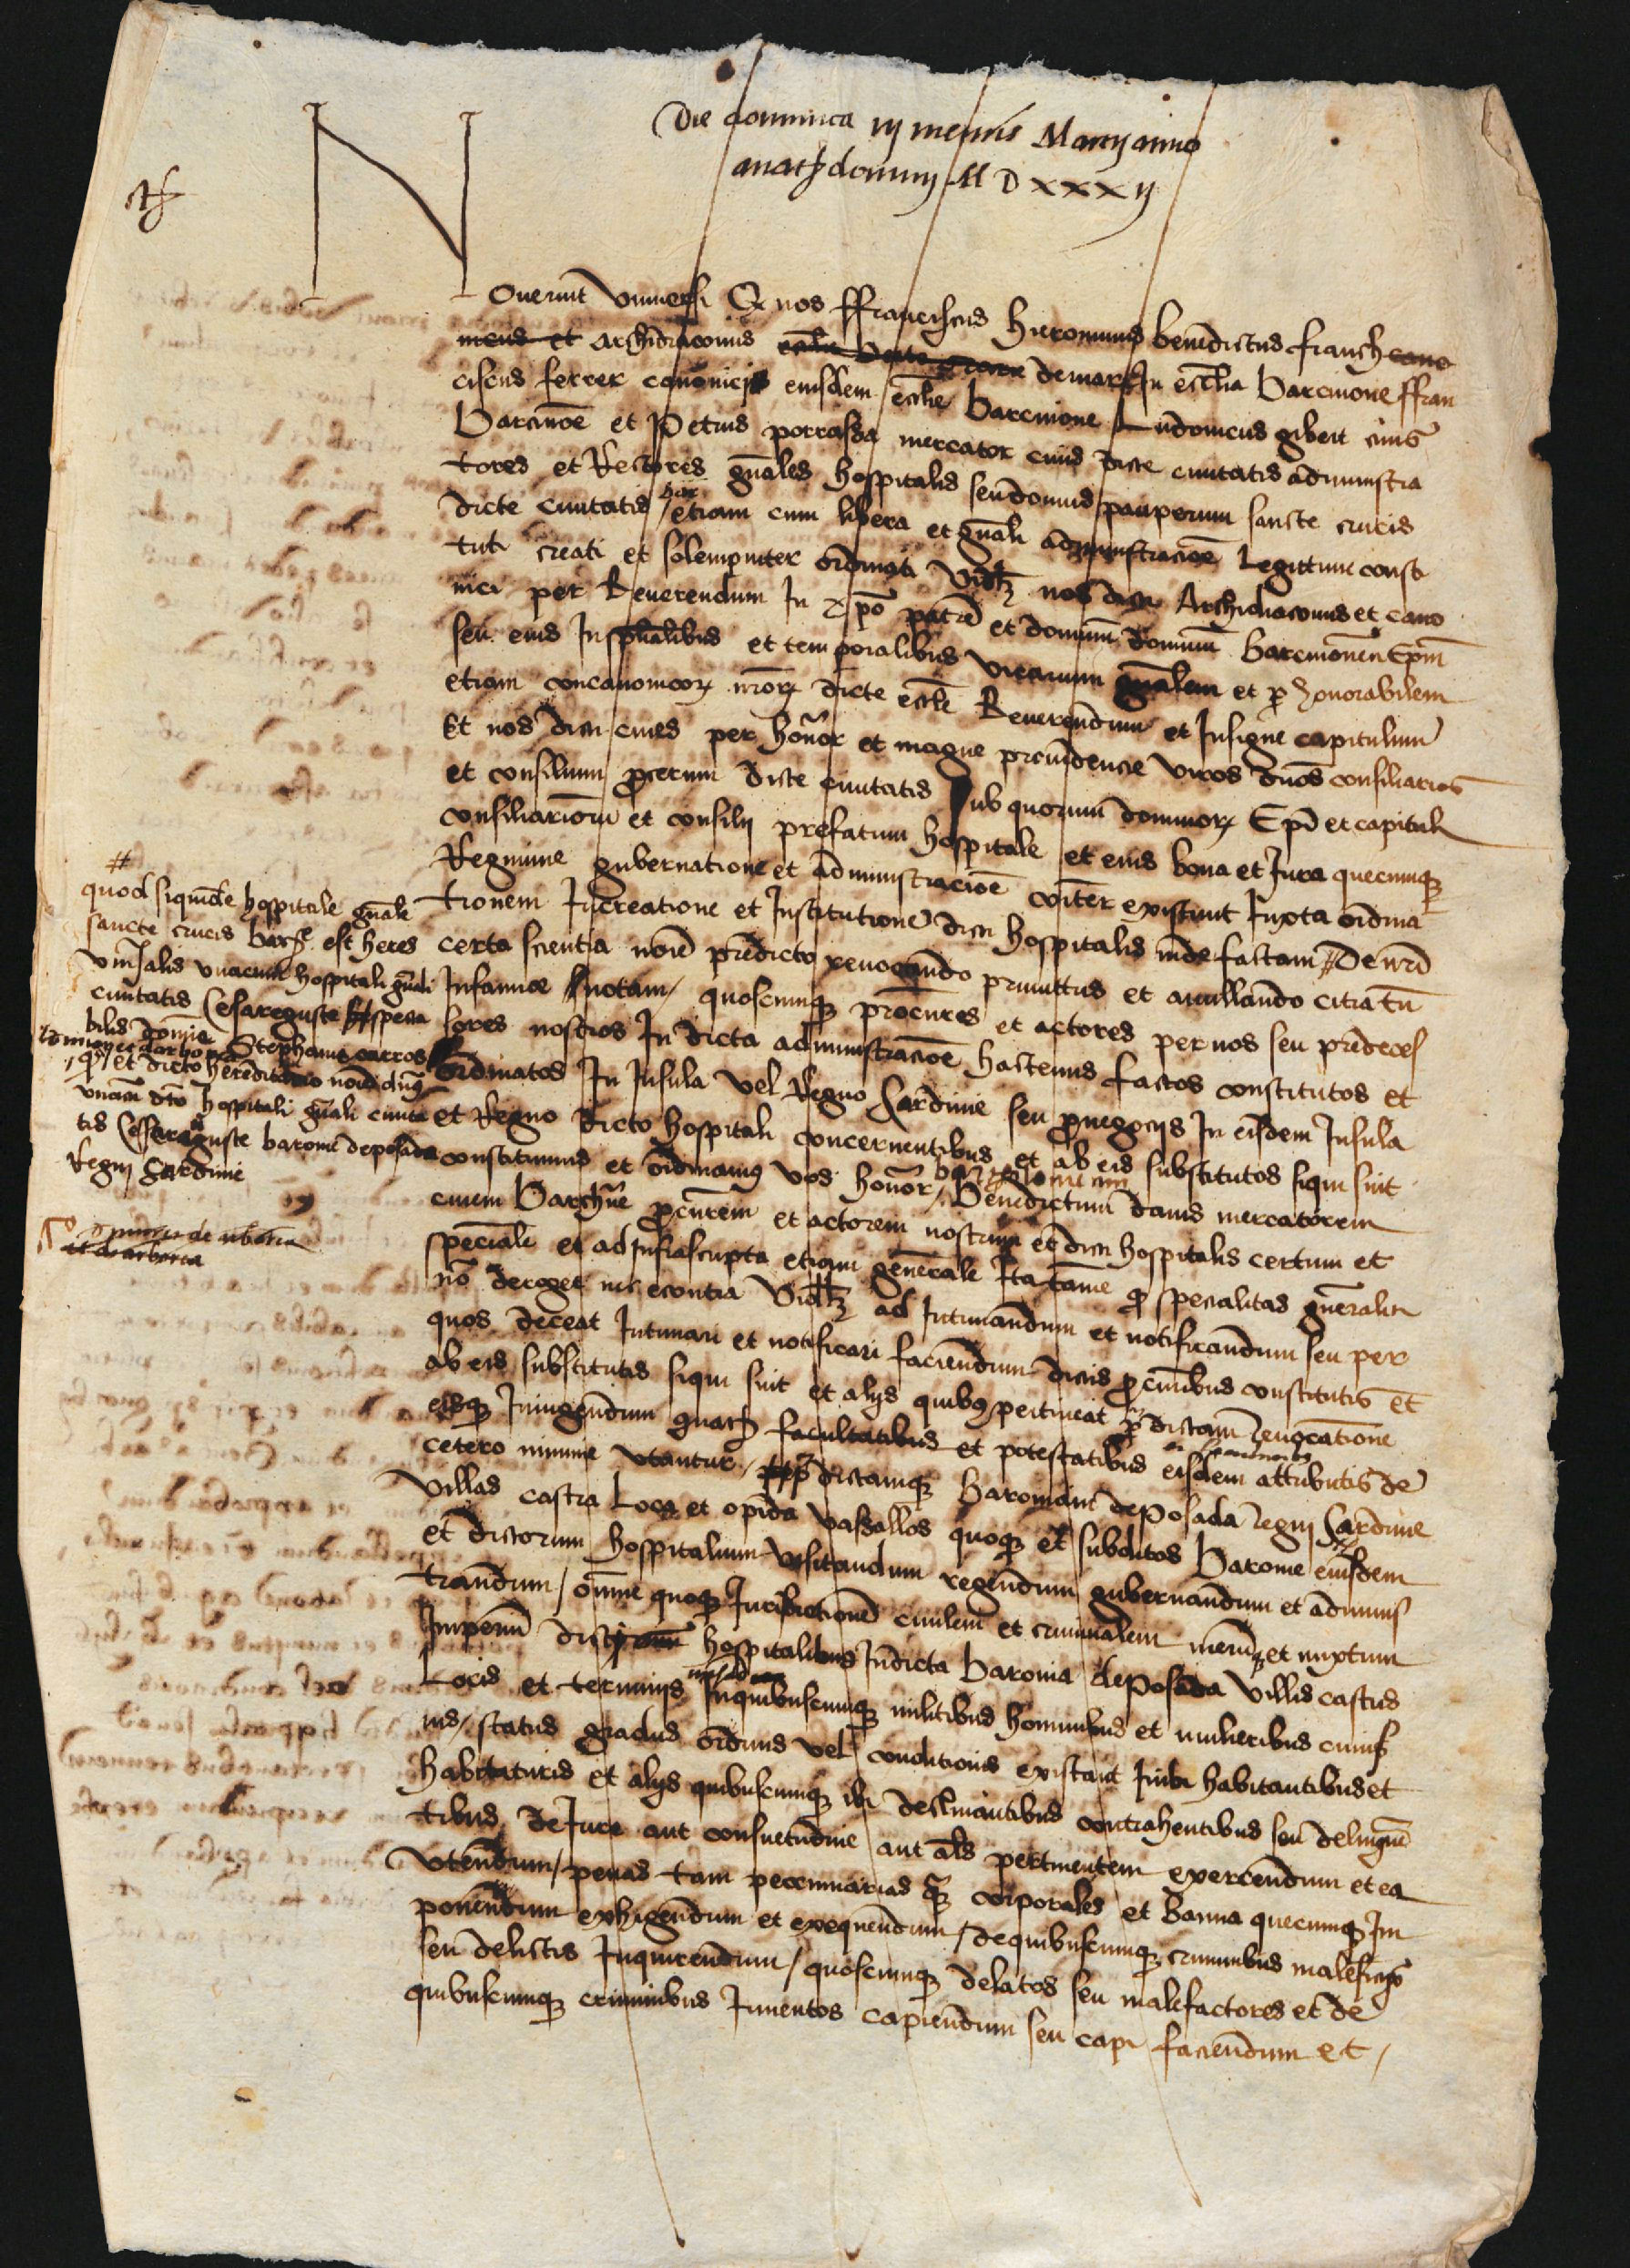 Die dominica iij mensis Marcij anno
a natj domini M D xxxij
N
Ouerint vniuersi Q nos ffranciscus hieronimus benedictus franch cano
nicus et archidiaconus demar In ecclia Barcinone ffran
ciscus ferrer canonicis eiusdem ecclie Barcinone Ludouicus gibert ciuis
Barcinoe et Petrus porrassa mercator ciuis dicte ciuitatis administra
tores et Rectores gnales hospitalis seu domus pauperum sancte crucis
dicte ciuitatis etiam cum libera et gnali administracioe legittime consti
tuti creati et solempniter ordinati vidlz nos dicti Archidiaconus et cano
nici per Reuerendum In xpo patre et dominum dominum Barcinonen Epm
seu eius In spualibus et temporalibus vicarium gnalem et p honorabilem
etiam concanonicor nror dicte ecclie Reuerendum et Insigne capitulum
Et nos dicti ciues per honor et magne prouidencie viros dnos consiliarios
et consilium procerum dicte ciuitatis Sub quorum dominor Epi et capituli
consiliariorum et consilij prefatum hospitale et eius bona et Iura quecumq
Regimine gubernatione et administracioe existunt Iuxta ordina
tionem In creatione et Institutione dicti hospitalis inde factam # De nri
certa scientia noie predicto reuocando primittus et anullando citra tn
Infamie notam quoscumq procures et actores per nos seu predeces
sores nostros In dicta administracioe hactenus factos constitutos et
ordinatos In Insula vel Regno Sardinie seu pro negocijs In eisdem Insula
et Regno dicto hospitali concernentibus et ab eis substitutos siqui sint
constituimus et ordinamus vos honor Benedictum danis mercatorem
ciuem Barchne procurem et actorem nostrum et dicti hospitalis certum et
speciale et ad Infrascripta etiam generale Ita tame q specialitas gneralitati
no deroget nec econtra Vidlz ad Intimandum et notificandum seu per
quos deceat Intimari et notificari faciendum dictis procuribus constitutis et
ab eis substitutis siqui sint et alijs quibus pertineat pdictam reuocatione
eisq Iniungendum quatj facultatibus et potestatibus eisdem attributis de
cetero minime vtantur dictamq Baroniam de Posada regni Sardinie
villas castra loca et opida vassallos quoq et subditos Baronie eiusdem
et dictorum hospitalium visitandum regendum gubernandum et adminis
trandum omne quoq Iurisdictione ciuilem et criminalem meru et mixtum
Imperiu dictis hospitalibus In dicta baronia de Posada villis castris
locis et terminis In quibuscumq militibus hominibus et mulieribus cuius
uis status gradus ordinis vel conditionis existant Inibi habitantibus et
habitaturis et alijs quibuscumq ibi declinantibus contrahentibus seu delinque
tibus de Iure aut consuetudine aut als pertinentem exercendum et ea
vtendum penas tam peccuniarias q corporales et banna quecumq Im
ponendum exhigendum et exequendum de quibuscumq criminibus maleficijs
seu delictis Inquirendum quoscumq delatos seu malefactores et de
quibuscumq criminibus Inuentos capiendum seu capi faciendum et
#
quod siquide hospitale gnale
sancte crucis barche est heres
vniusalis vnacum hospitali gnali
ciuitatis Cesarguste
Stephanie carros
et dicto hereditario noie
vnacu dto hospitali gnali ciuita
tis Cesarguste baronie de posada
Regni Sardinie